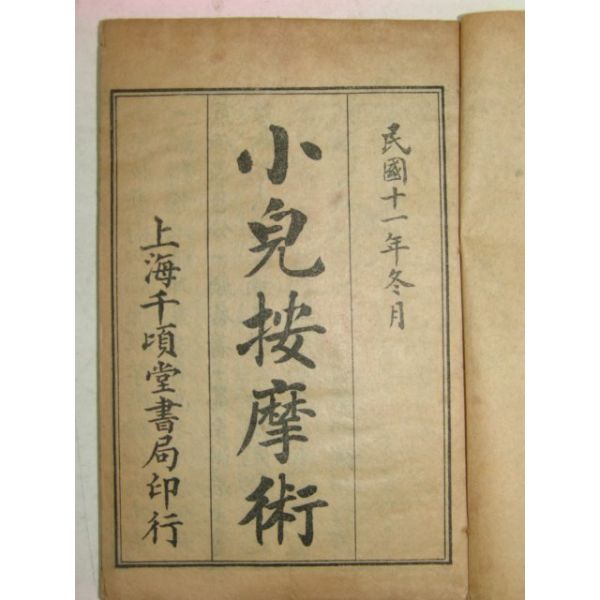 民國十一年冬月
小兒按摩術
上海千頃堂書局印行